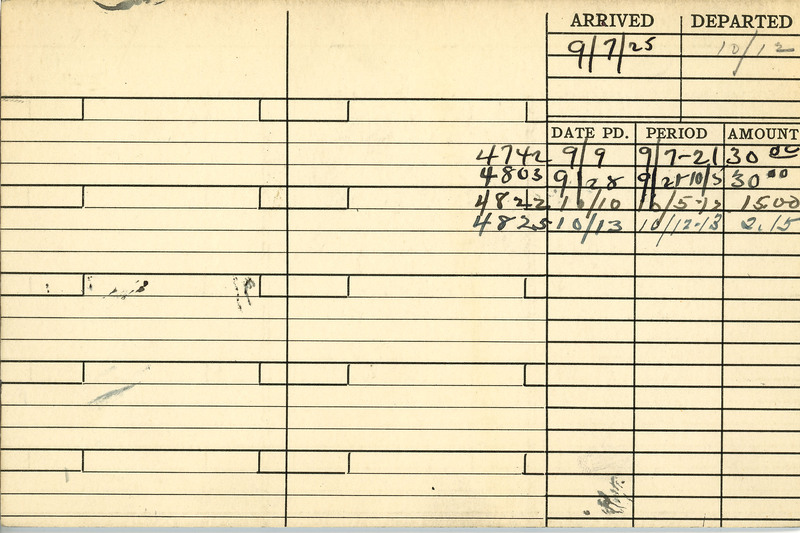 ARRIVED DEPARTED
9/7/25 10/12
DATE PD. PERIOD AMOUNT
4742 9/9 9/7-21 30 00
4803 9/28 9/21-10/5 30 00
4822 10/10 10/5-12 15.00
4825 10/13 10/12-13 2.15